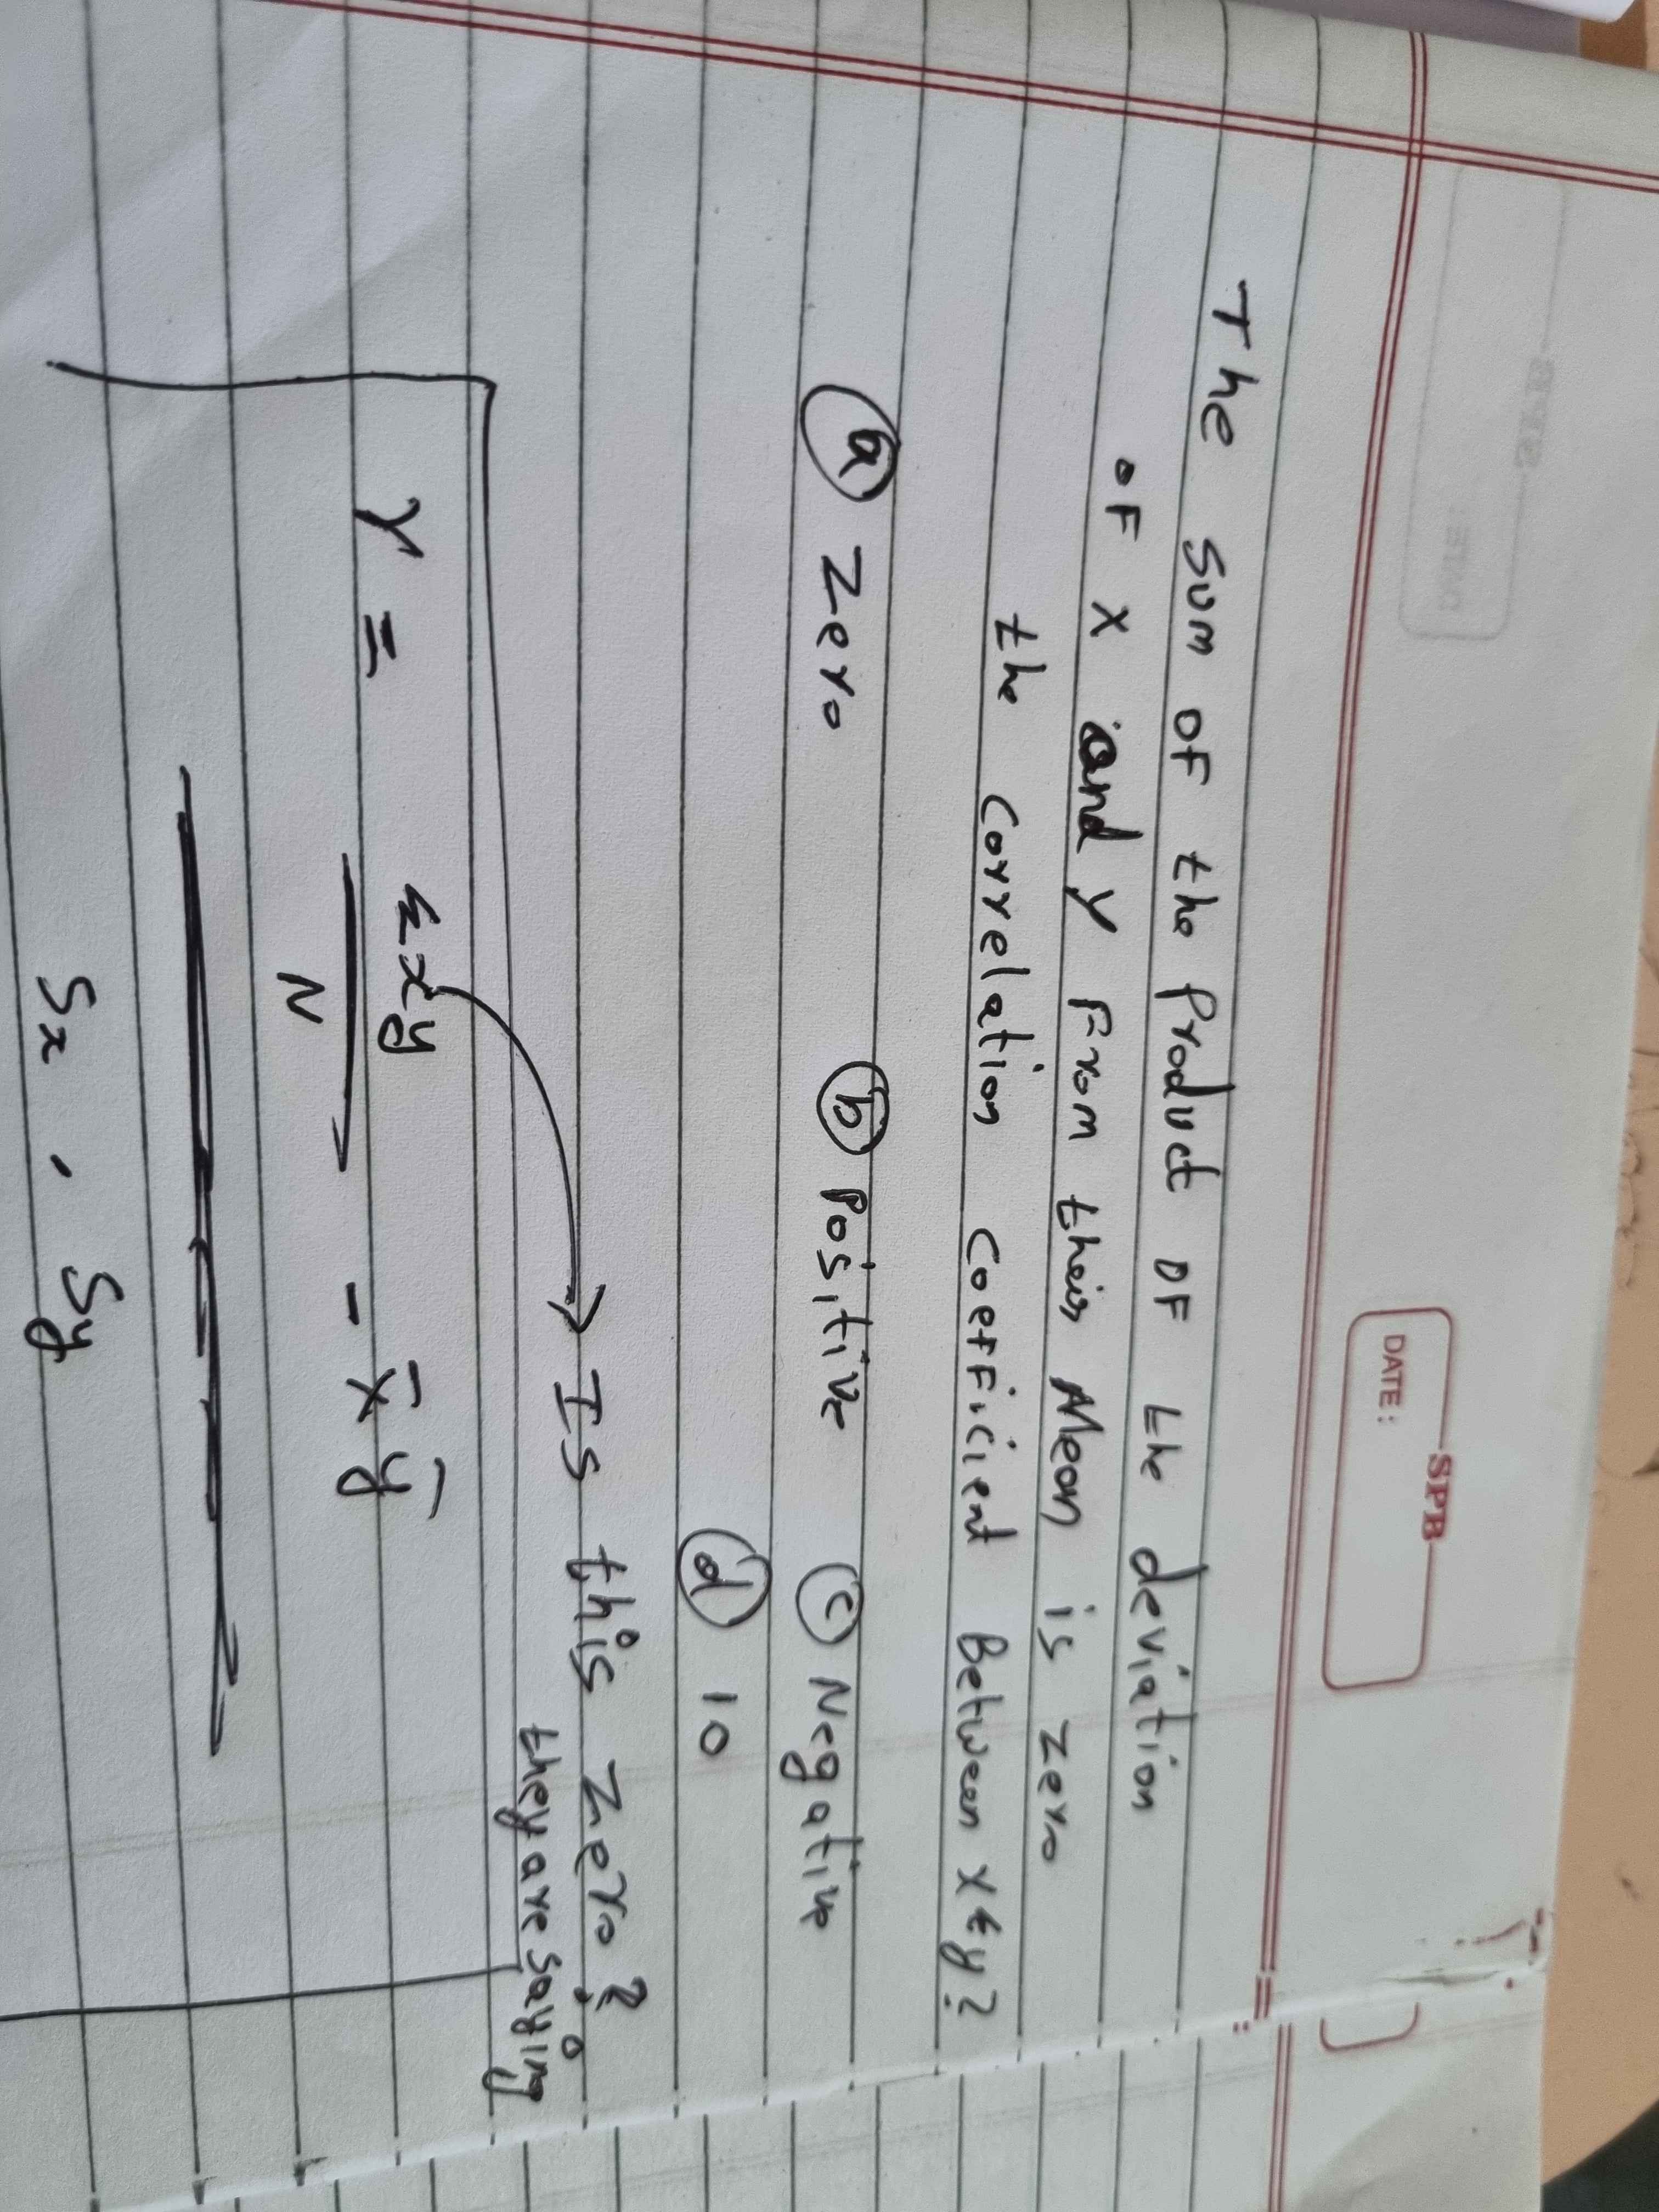 SPB
DATE:
The sum of the Product of the deviation
of x and y From their Mean is zero
the correlation coefficient Between x & y?
(a) Zero (b) Positive (c) Negative
(d) 10
Is this zero?
they are saying
r = Σxy / N - x̄ ȳ
Sx . Sy